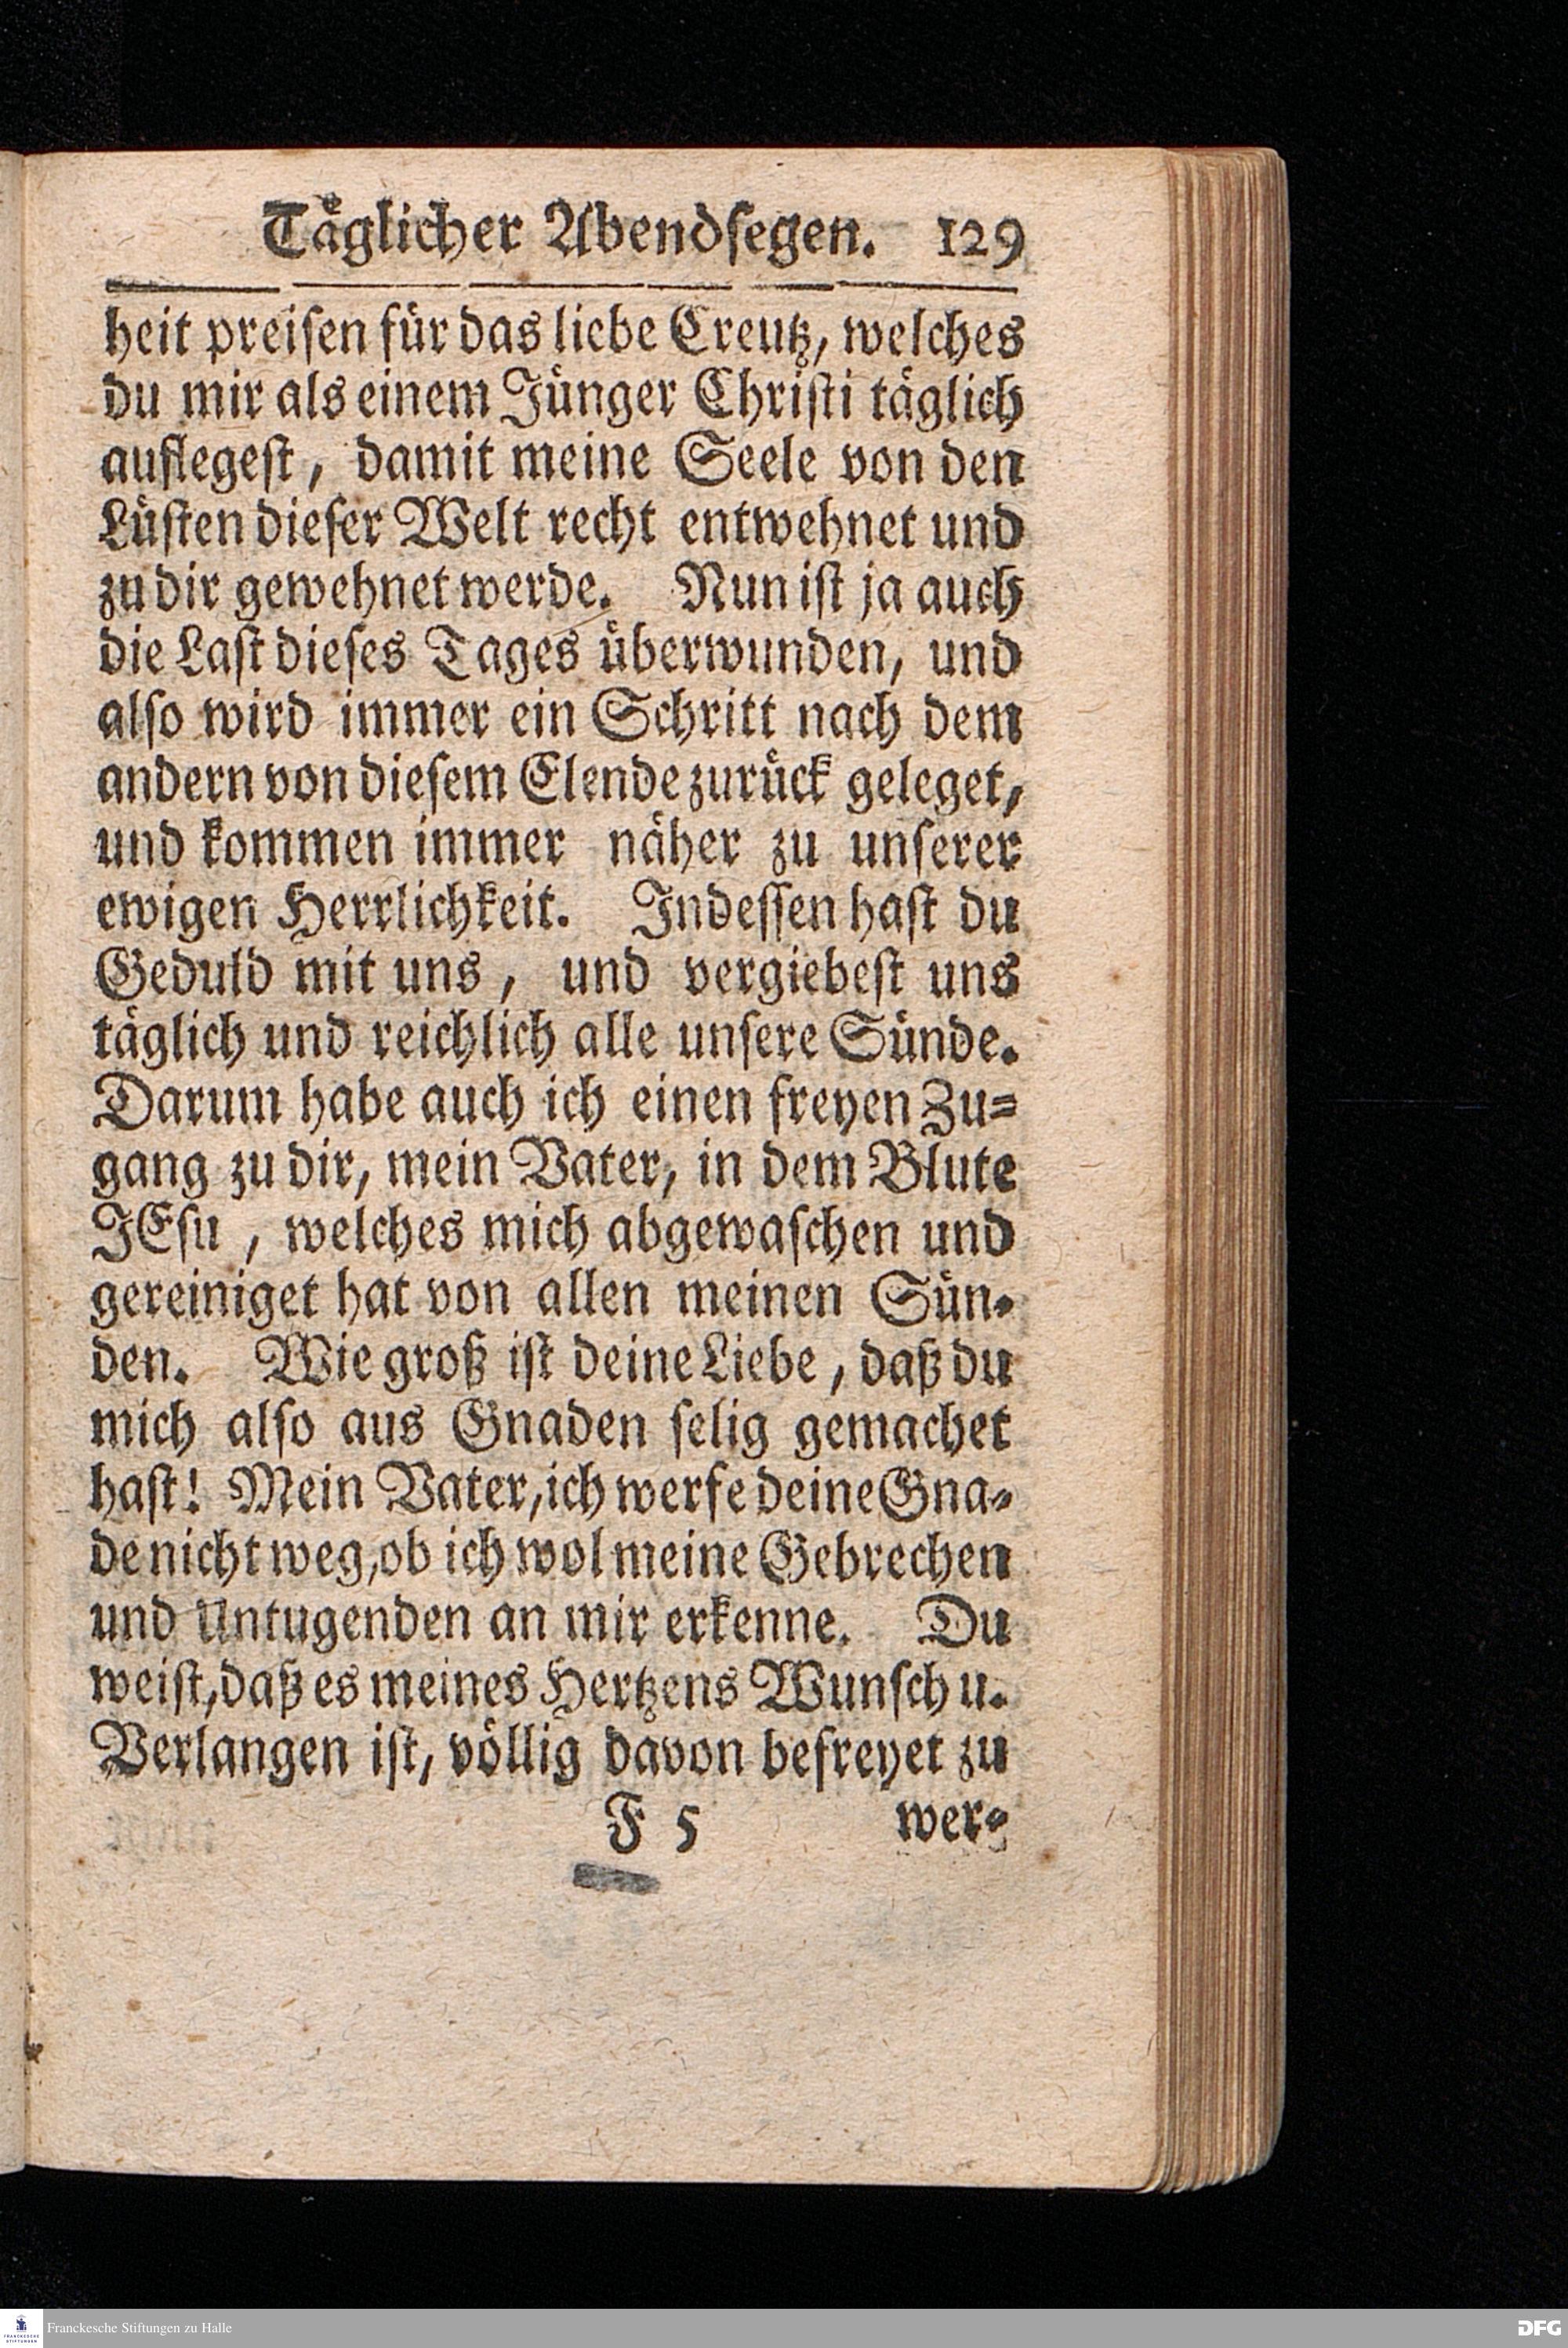 Täglicher Abendsegen. 129
heit preisen für das liebe Creutz, welches
du mir als einem Jünger Christi täglich
auflegest, damit meine Seele von den
Lüsten dieser Welt recht entwehnet und
zu dir gewehnet werde. Nun ist ja auch
die Last dieses Tages überwunden, und
also wird immer ein Schritt nach dem
andern von diesem Elende zurück geleget,
und kommen immer näher zu unserer
ewigen Herrlichkeit. Indessen hast du
Geduld mit uns, und vergiebest uns
täglich und reichlich alle unsere Sünde.
Darum habe auch ich einen freyen Zu-
gang zu dir, mein Vater, in dem Blute
JEsu, welches mich abgewaschen und
gereiniget hat von allen meinen Sün-
den. Wie groß ist deine Liebe, daß du
mich also aus Gnaden selig gemachet
hast! Mein Vater, ich werfe deine Gna-
de nicht weg, ob ich wol meine Gebrechen
und Untugenden an mir erkenne. Du
weist, daß es meines Hertzens Wunsch u.
Verlangen ist, völlig davon befreyet zu
F 5 wer-
FRANCKESCHE STIFTUNGEN
Franckesche Stiftungen zu Halle
DFG